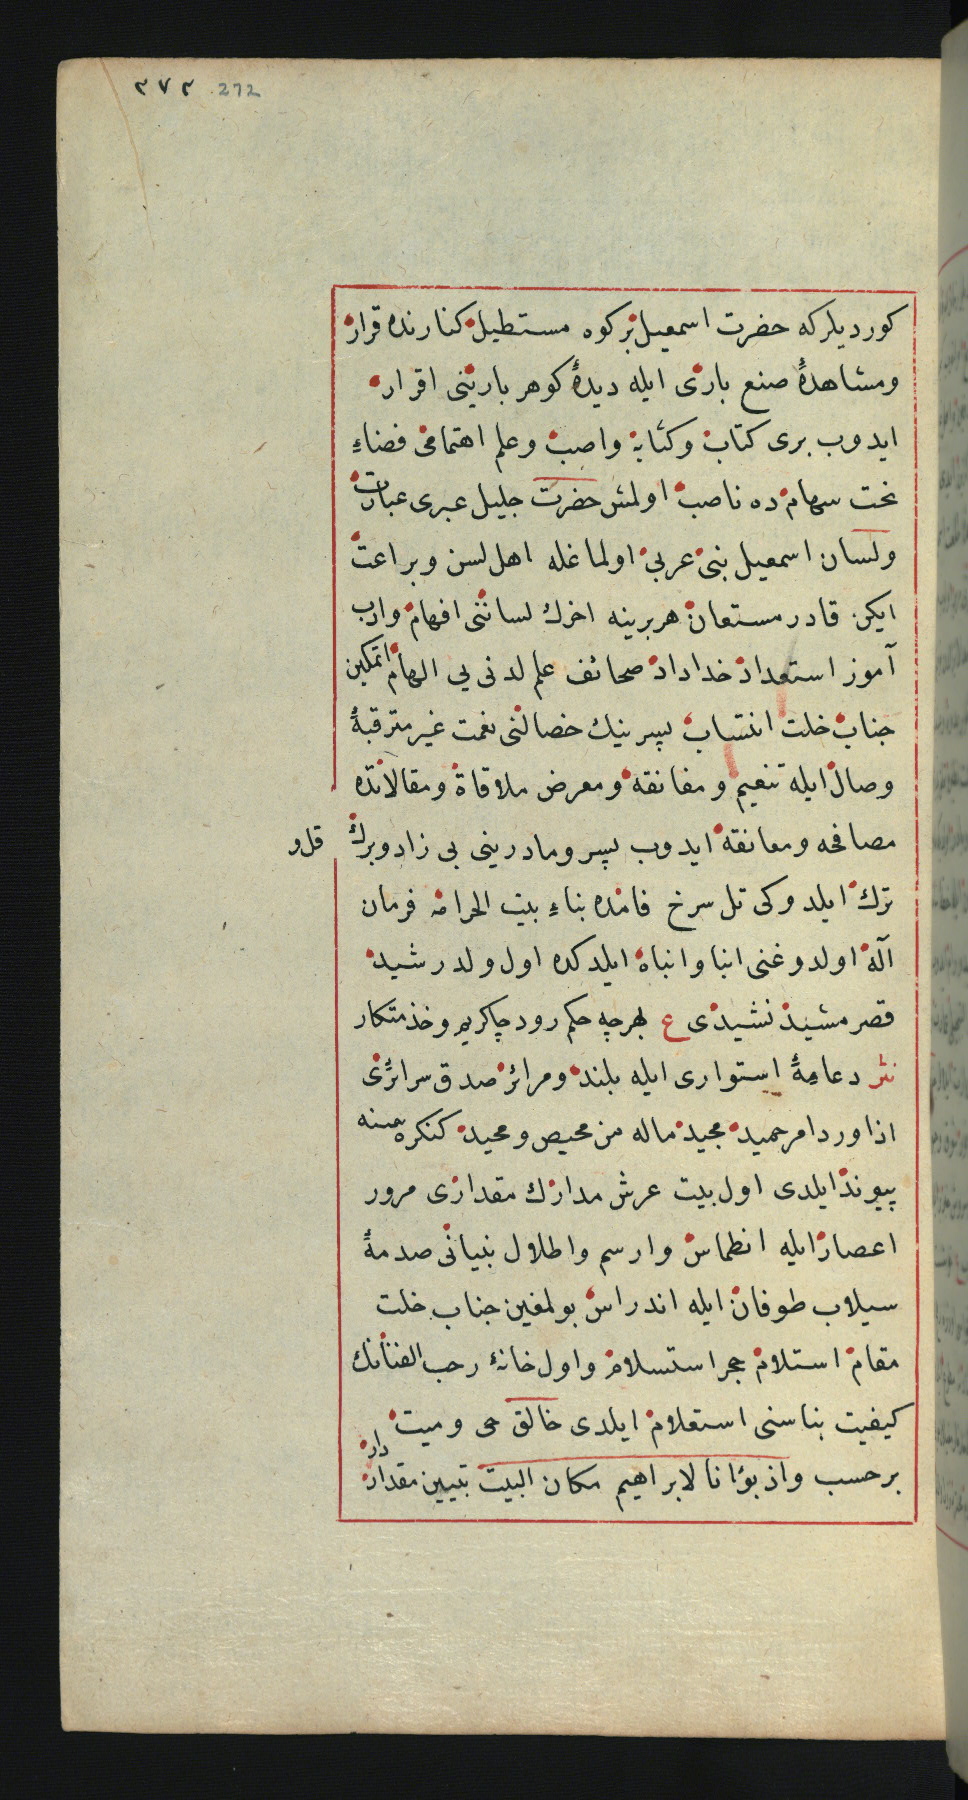 ٢٧٢ 272
كورديلركه حضرت اسمعيل بر كوه مستطيل كنارنده قرار
ومشاهدهٔ صنع بارى ايله ديدهٔ كوهر بارينى اقرار
ايدوب برى كتاب وكتابه واصب وعلم اهتمامى فضاء
نحت سهام ده ناصب اولمش حضرت جليل عبرى عبارت
ولسان اسمعيل بنى عربى اولماغله اهل لسن وبراعت
ايكن قادر مستعان هر برينه اخرك لساننى افهام وادب
آموز استعداد خداداد صحائف علم لدنى يى الهام اتمكين
جناب خلت انتساب پسر نيك خصالنى نعمت غير مترقبهٔ
وصال ايله تنعيم و مفانقه ومعرض ملاقاة ومقالاتده
مصافحه ومعانقه ايدوب پسر ومادرينى بى زاد وبرك
قل و
ترك ايلدوكى تل سرخ فامده بناء بيت الحرامه فرمان
آله اولدوغنى انبا وانباه ايلدكده اول ولد رشيد
قصر مشيد نشيدى ع بهرچه حكم رود چاكريم وخذمتكار
نثر دعامهٔ استوارى ايله بلند ومرائر صدق سرائرى
اذا ورد امر حميد مجيد ماله من محيص ومحيد كنكره سنه
پيوند ايلدى اول بيت عرش مدارك مقدارى مرور
اعصار ايله انطماس وارسم واطلال بنيانى صدمهٔ
سيلاب طوفان ايله اندراس بولمغين جناب خلت
مقام استلام حجر استسلام واول خانهٔ رحب الفنانك
كيفيت بناسنى استعلام ايلدى خالق حى وميت
برحسب واذ بوّانا لابراهيم مكان البيت تبيين مقدار
دار